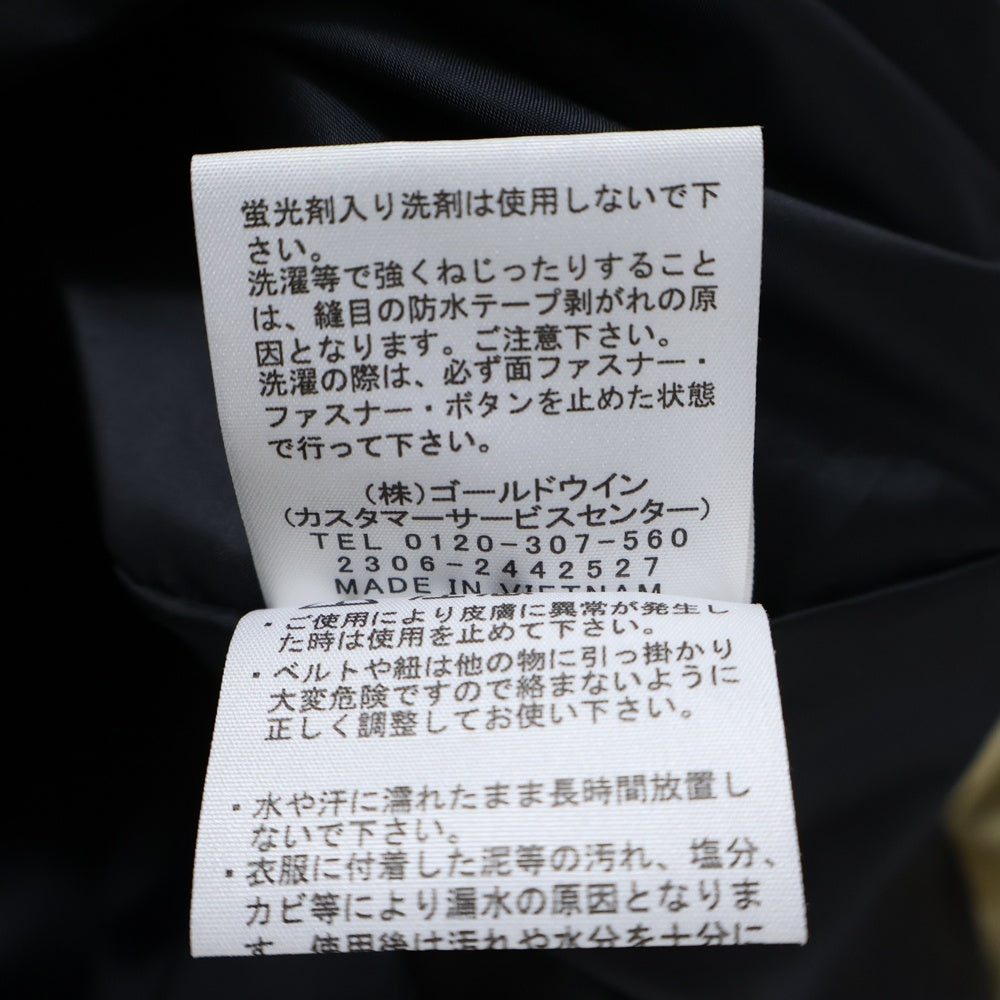 蛍光剤入り洗剤は使用しないで下
さい。
洗濯等で強くねじったりすること
は、縫目の防水テープ剥がれの原
因となります。ご注意下さい。
洗濯の際は、必ず面ファスナー・
ファスナー・ボタンを止めた状態
で行って下さい。
(株)ゴールドウイン
(カスタマーサービスセンター)
TEL 0120-307-560
2306-2442527
MADE IN VIETNAM
・ご使用により皮膚に異常が発生し
た時は使用を止めて下さい。
・ベルトや紐は他の物に引っ掛かり
大変危険ですので絡まないように
正しく調整してお使い下さい。
・水や汗に濡れたまま長時間放置し
ないで下さい。
・衣服に付着した泥等の汚れ、塩分、
カビ等により漏水の原因となりま
す。使用後は汚れや水分を十分に